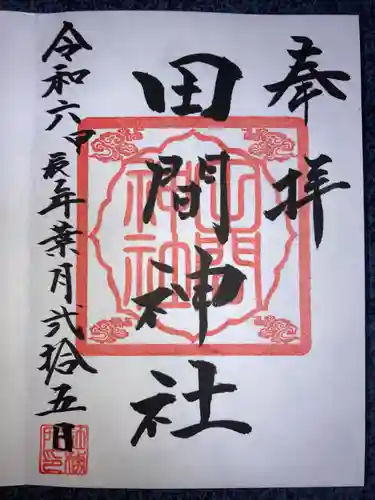 奉拝
田間神社
令和六甲辰年葉月弐拾五日
田間神社